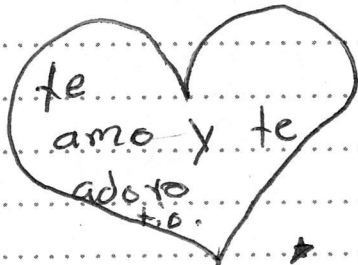 te
amo y te
adoro
t.o.